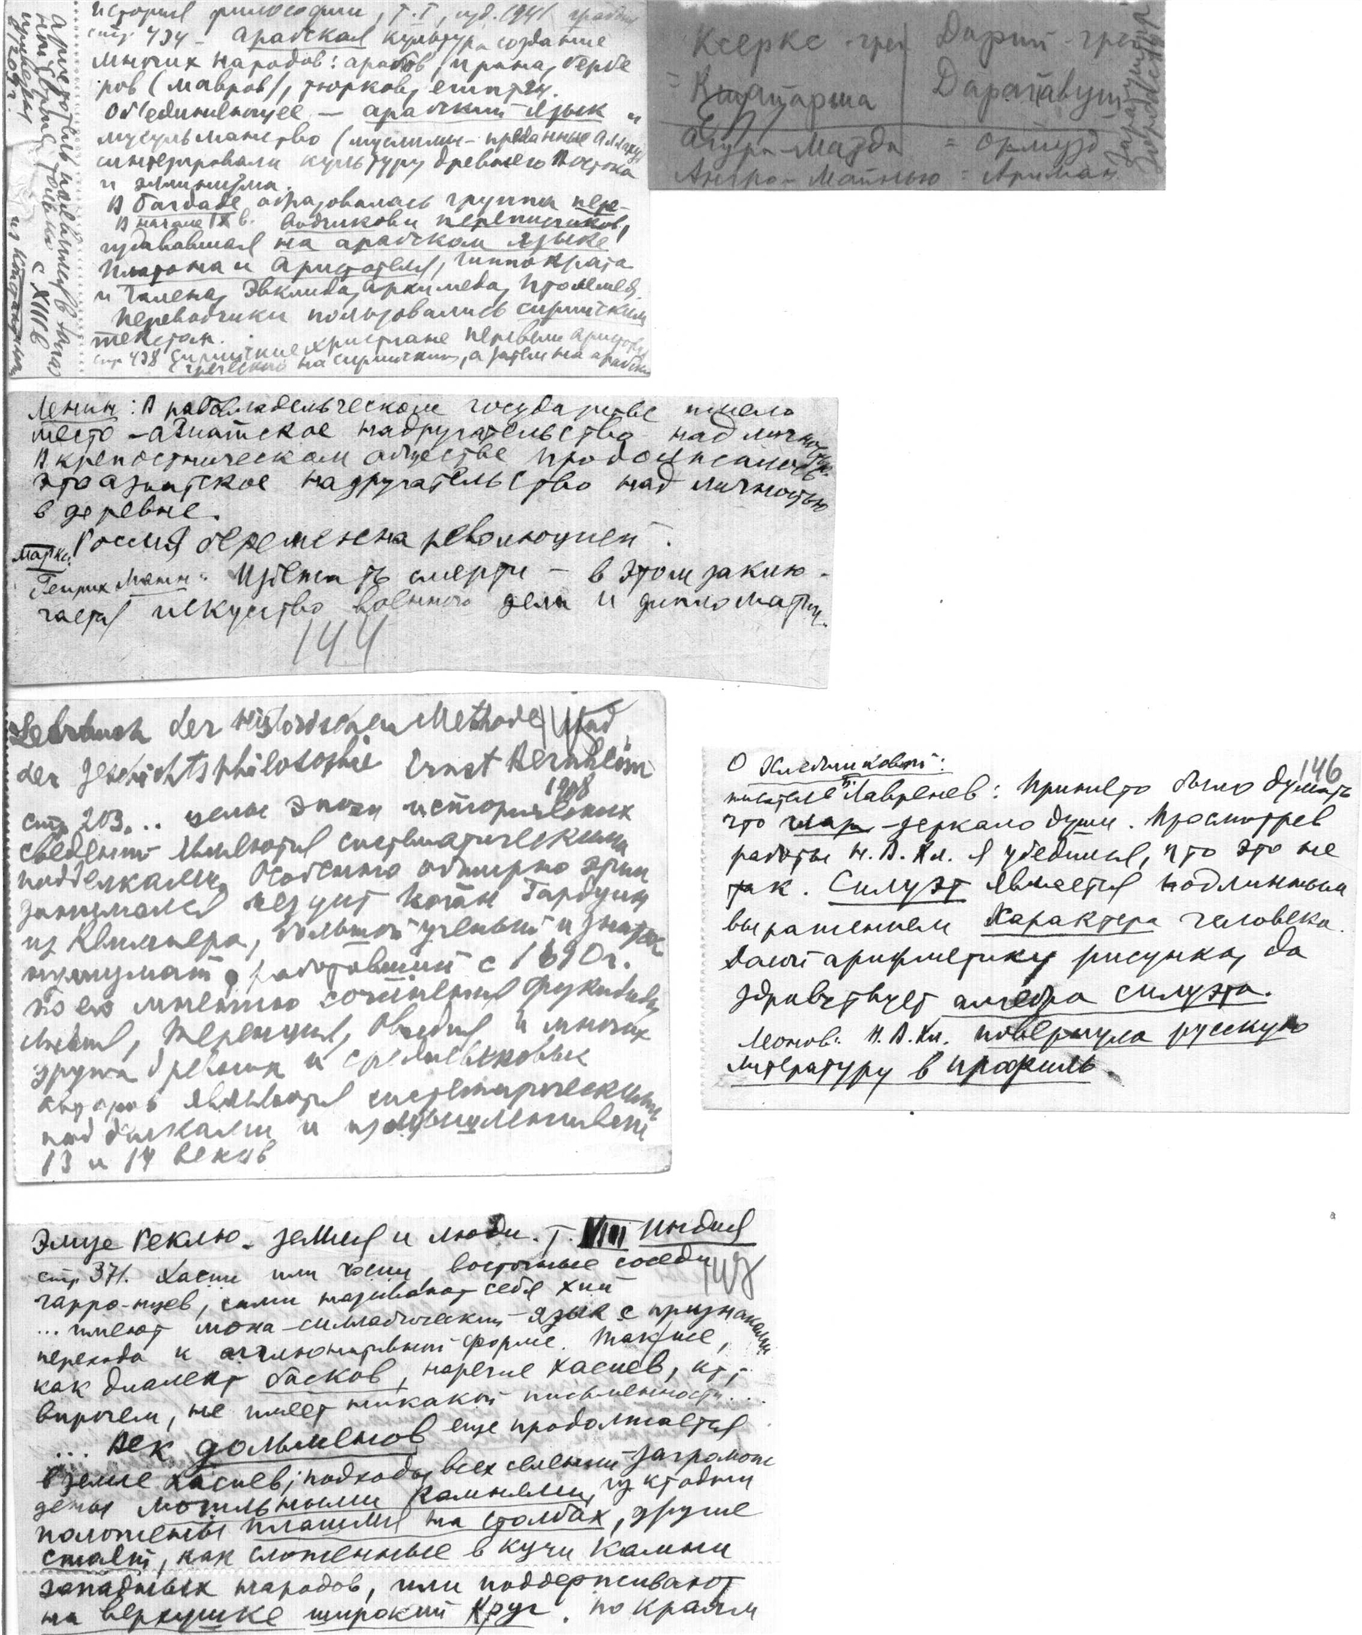 История философии, т. I, изд. 1941
стр 434 – арабская культура создание
многих народов: арабов, Ирана, бербе
ров (мавров), тюрков, египтян.
Объединяющее – арабский язык и
мусульманство (муслимы – преданные Аллаху)
синтезировали культуру древнего Востока
и эллинизма.
В Багдаде образовалась группа пере-
В начале IX в. водчиков и переписчиков,
издававшая на арабском языке
Платона и Аристотеля, Гиппократа
и Галена, Эвклида, Архимеда, Птолемея.
Переводчики пользовались сирийским
текстом.
стр 438 сирийские христиане перевели
с греческого на сирийский, а затем на арабский
Аристотель появился в
с XIII в
Ксеркс – греч Дарий – греч
= Кшатарша Дараявуш
Агура-Мазда = Ормузд
Ангро-Майнью = Ариман
Заратуштра
Ленин: В рабовладельческом государстве имело
место – азиатское надругательство над личностью
В крепостническом обществе продолжалось
это азиатское надругательство над личностью
в деревне.
Маркс: Россия беременна революцией.
Генрих Манн: Избежать смерти – в этом заклю-
чается искусство военного дела и дипломатии.
144
Lehrbuch der historischen Methode und
der Geschichtsphilosophie Ernst Bernheim
1908
стр 203... целые эпохи исторических
сведений являются систематическими
подделками. Особенно обширно этим
занимался иезуит Гардуин
из Квимпера, большой ученый и знаток
нумизмат, работавший с 1690 г.
По его мнению сочинения Фукидида
Ливия, Теренция, Овидия и многих
других древних и средневековых
авторов являются систематическими
подделками и измышлениями
13 и 14 веков
146
О Хлебниковой:
писатель Б. Лавренев: Принято было думать
что глаз – зеркало души. Просмотрев
работы Н. В. Хл. я убедился, что это не
так. Силуэт является подлинным
выражением характера человека.
Долой арифметику рисунка, да
здравствует алгебра силуэта.
Леонов: Н. В. Хл. повернула русскую
литературу в профиль.
Элизе Реклю – Земля и люди. Т. VIII Индия
стр 371. Хасии или Косии восточные соседи
гарро-нцев, сами называют себя Хий
... имеют моно-силлабический язык с признаками
перехода к агглютинативной форме. Также,
как диалект басков, наречие хасиев,
впрочем, не имеет никакой письменности...
... Век дольменов еще продолжается
в земле хасиев; подходы всех селений загромож
дены могильными камнями, из которых
положены плашмя на столбах, другие
стоят, как сложенные в кучи камни
западных народов, или поддерживают
на верхушке широкий круг. По краям